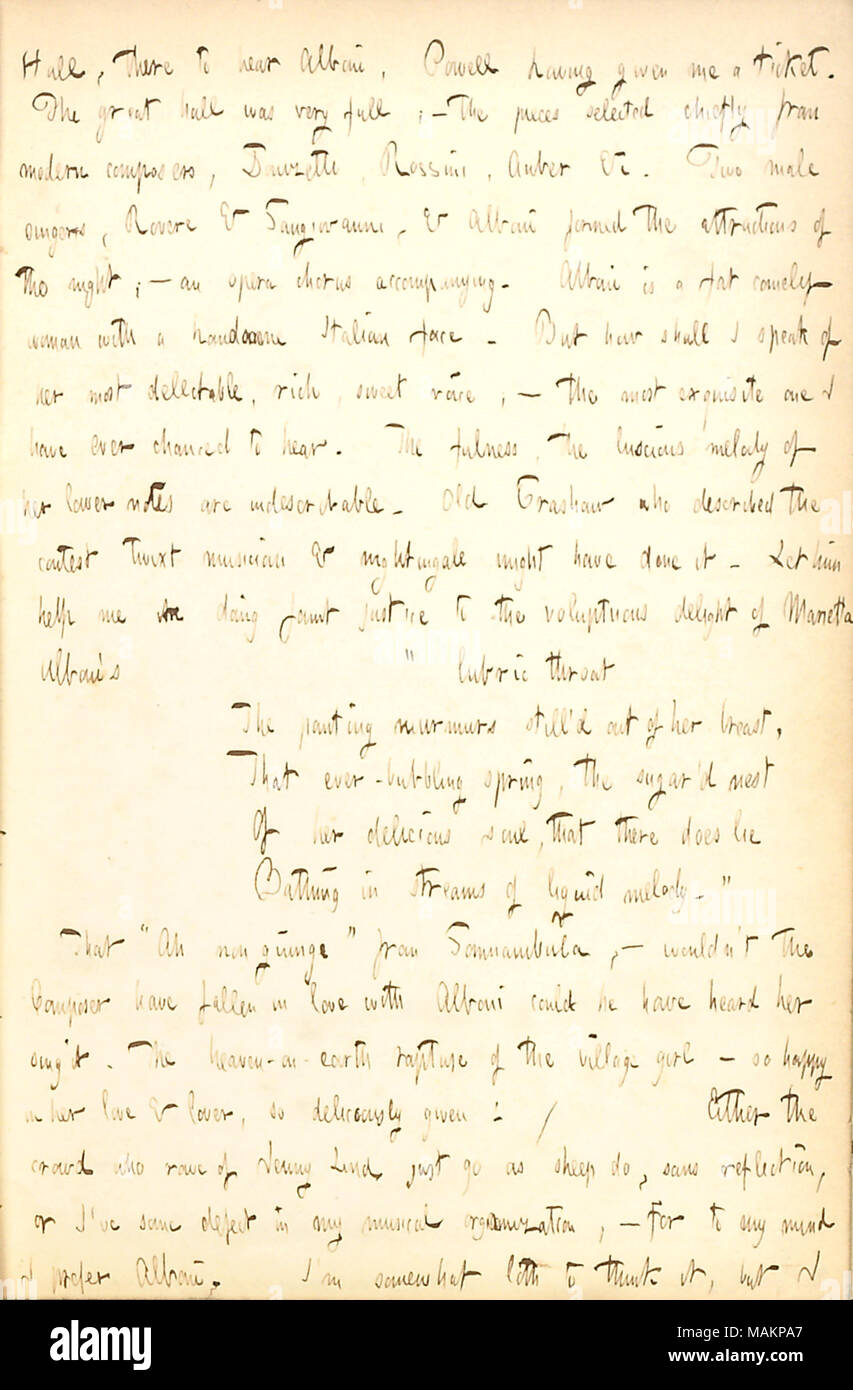 Hall, there to hear Alboni, Powell having given me a ticket.
The great hall was very full ; — the pieces selected chiefly from
modern composers, Donizetti, Rossini, Auber &c. Two male
singers, Rovere & Sangiovanni, & Alboni formed the attractions of
the night ; — an opera chorus accompanying. Alboni is a fat comely
woman with a handsome Italian face. But how shall I speak of
her most delectable, rich, sweet voice ; — the most exquisite one I
have ever chanced to hear. The fulness, the luscious melody of
her lower notes are indescribable. Old Crashaw who described the
contest twixt musician & nightingale might have done it. Let him
help me in doing faint justice to the voluptuous delight of Marietta
Alboni's " lubric throat
The panting murmurs still'd out of her breast,
That ever-bubbling spring, the sugar'd nest
Of her delicious soul, that there does lie
Bathing in streams of liquid melody. "
That "Ah non giunge" from Somnambula, — wouldn't the
Composer have fallen in love with Alboni could he have heard her
sing it. The heaven-on-earth rapture of the village girl — so happy
in her love & lover, so deliciously given ! / Either the
crowd who rave of Jenny Lind just go as sheep do, sans reflection,
or I've some defect in my musical organization, — for to my mind
I prefer Alboni. I'm somewhat loth to think it, but I
alamy
Image ID: MAKPA7
www.alamy.com